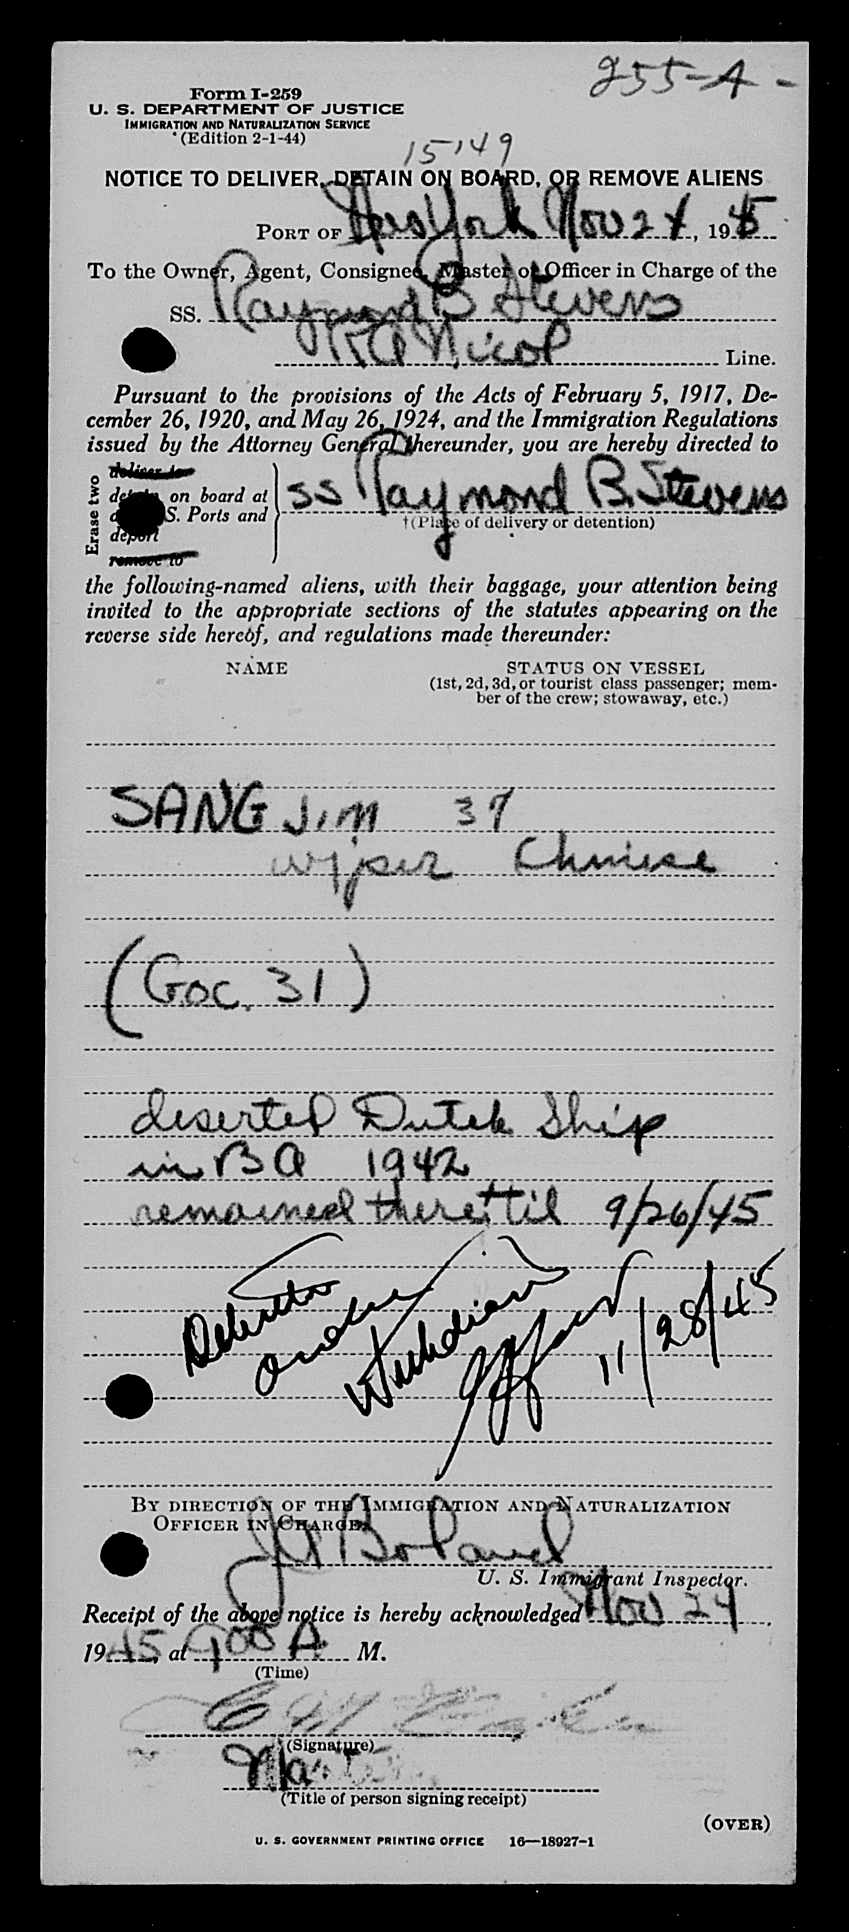 255-A-
Form I-259
U. S. DEPARTMENT OF JUSTICE
IMMIGRATION AND NATURALIZATION SERVICE
(Edition 2-1-44)
15149
NOTICE TO DELIVER, DETAIN ON BOARD, OR REMOVE ALIENS
PORT OF New York Nov 24, 1945
To the Owner, Agent, Consignee, Master or Officer in Charge of the
SS. Raymond B Stevens
RA Nicol Line.
Pursuant to the provisions of the Acts of February 5, 1917, De-
cember 26, 1920, and May 26, 1924, and the Immigration Regulations
issued by the Attorney General thereunder, you are hereby directed to
Erase two
deliver to
detain on board at
S. Ports and
deport
remove to
SS Raymond B. Stevens
†(Place of delivery or detention)
the following-named aliens, with their baggage, your attention being
invited to the appropriate sections of the statutes appearing on the
reverse side hereof, and regulations made thereunder:
NAME STATUS ON VESSEL
(1st, 2d, 3d, or tourist class passenger; mem-
ber of the crew; stowaway, etc.)
SANG Jim 37
wiper Chinese
(Goc. 31)
deserted Dutch Ship
in BA 1942
remained there til 9/26/45
11/28/45
BY DIRECTION OF THE IMMIGRATION AND NATURALIZATION
OFFICER IN CHARGE:
J A Boland
U. S. Immigrant Inspector.
Receipt of the above notice is hereby acknowledged Nov 24,
1945, at 900 A M.
(Time)
(Signature)
Master
(Title of person signing receipt)
(OVER)
U. S. GOVERNMENT PRINTING OFFICE 16—18927-1